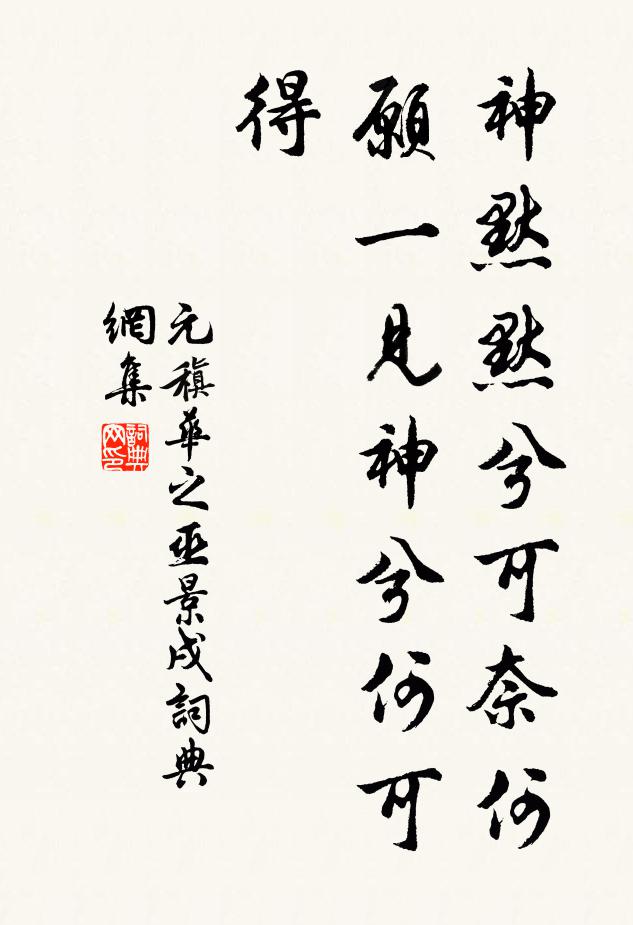 神默默兮可奈何
願一見神兮何可
得
元稹華之巫景戌詞典
網集
詞典
网印